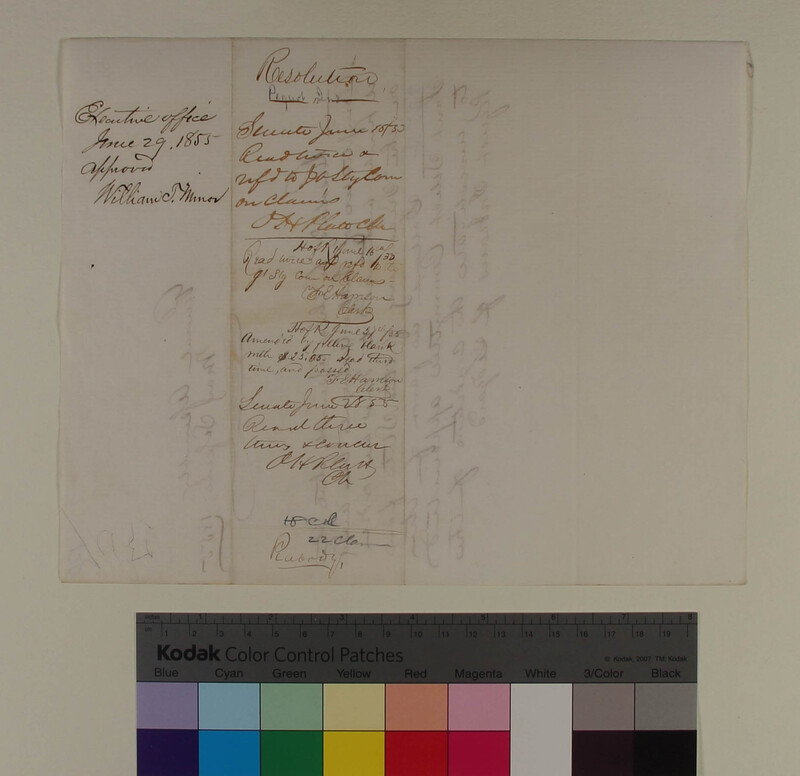 Executive office
June 29. 1855
Approved
William T. Minor
Resolution
Senate June 15/55
Read twice &
refd to Jt Stg Com
on Claims
O H Platt Clk
H of R June 15th/55
Read twice and refd to
Jt Stg Com on Claims
Clerk
H of R June 27th/55
Amended by filling blank
with $25.00, Read third
time, and passed
Clerk
Senate June 28 55
Read three
times & concur
O H Platt
Clk
22 Claim
Peabody,
mm 1 2 3 4 5 6 7 8
cm 1 2 3 4 5 6 7 8 9 10 11 12 13 14 15 16 17 18 19
Kodak Color Control Patches
© Kodak, 2007 TM: Kodak
Blue Cyan Green Yellow Red Magenta White 3/Color Black